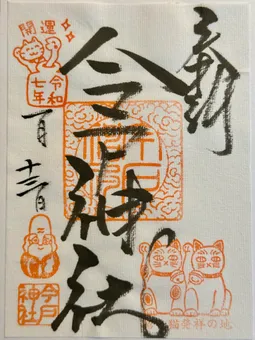 奉拝
今戸神社
開運
令和
七年
一月
十三日
今戸
神社
招き猫発祥の地